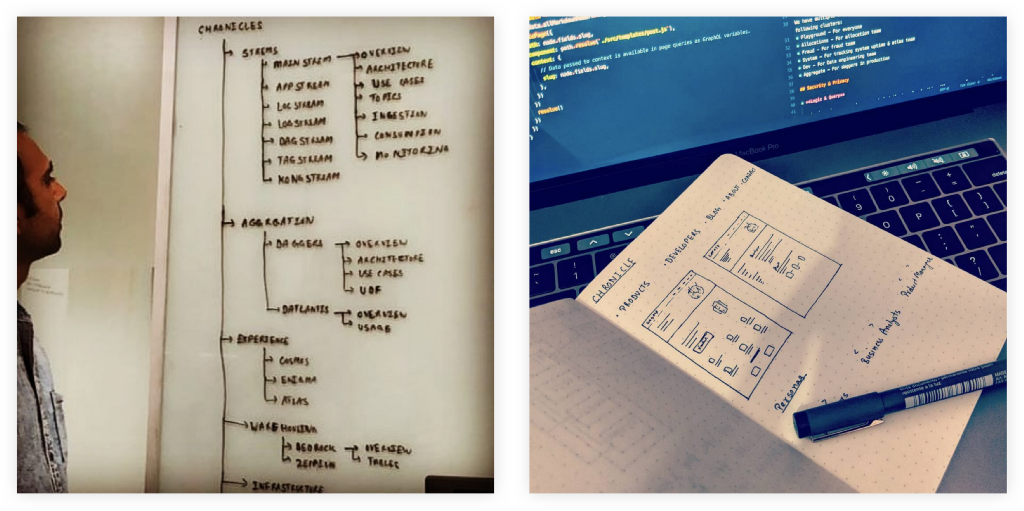 CHRONICLES
STREMS
MAIN STREM
OVERVIEW
ARCHITECTURE
USE CASES
TOPICS
INGESTION
CONSUMPTION
MONITORING
APP STREAM
LOC STREAM
LOG STREAM
DAG STREAM
TAG STREAM
KONG STREAM
AGGREGATION
DAGGERS
OVERVIEW
ARCHITECTURE
USE CASES
UDF
DATLANTIS
OVERVIEW
USAGE
EXPERIENCE
COSMOS
ENIGMA
ATLAS
WAREHOUSING
BEDROCK
OVERVIEW
TABLES
INFRASTRUCTURE
// Data passed to context is available in page queries as GraphQL variables.
slug: node.fields.slug,
resolve()
following clusters:
* Playground - For everyone
* Allocations - For allocation team
* Fraud - For fraud team
* System - For tracking system uptime & atlas team
* Dev - For Data engineering team
* Aggregate - For daggers in production
## Security & Privacy
MacBook Pro
esc
delete
CHRONICLE
· PRODUCTS · DEVELOPERS · BLOG · ABOUT
Personas
Business Analysts
Product Manager